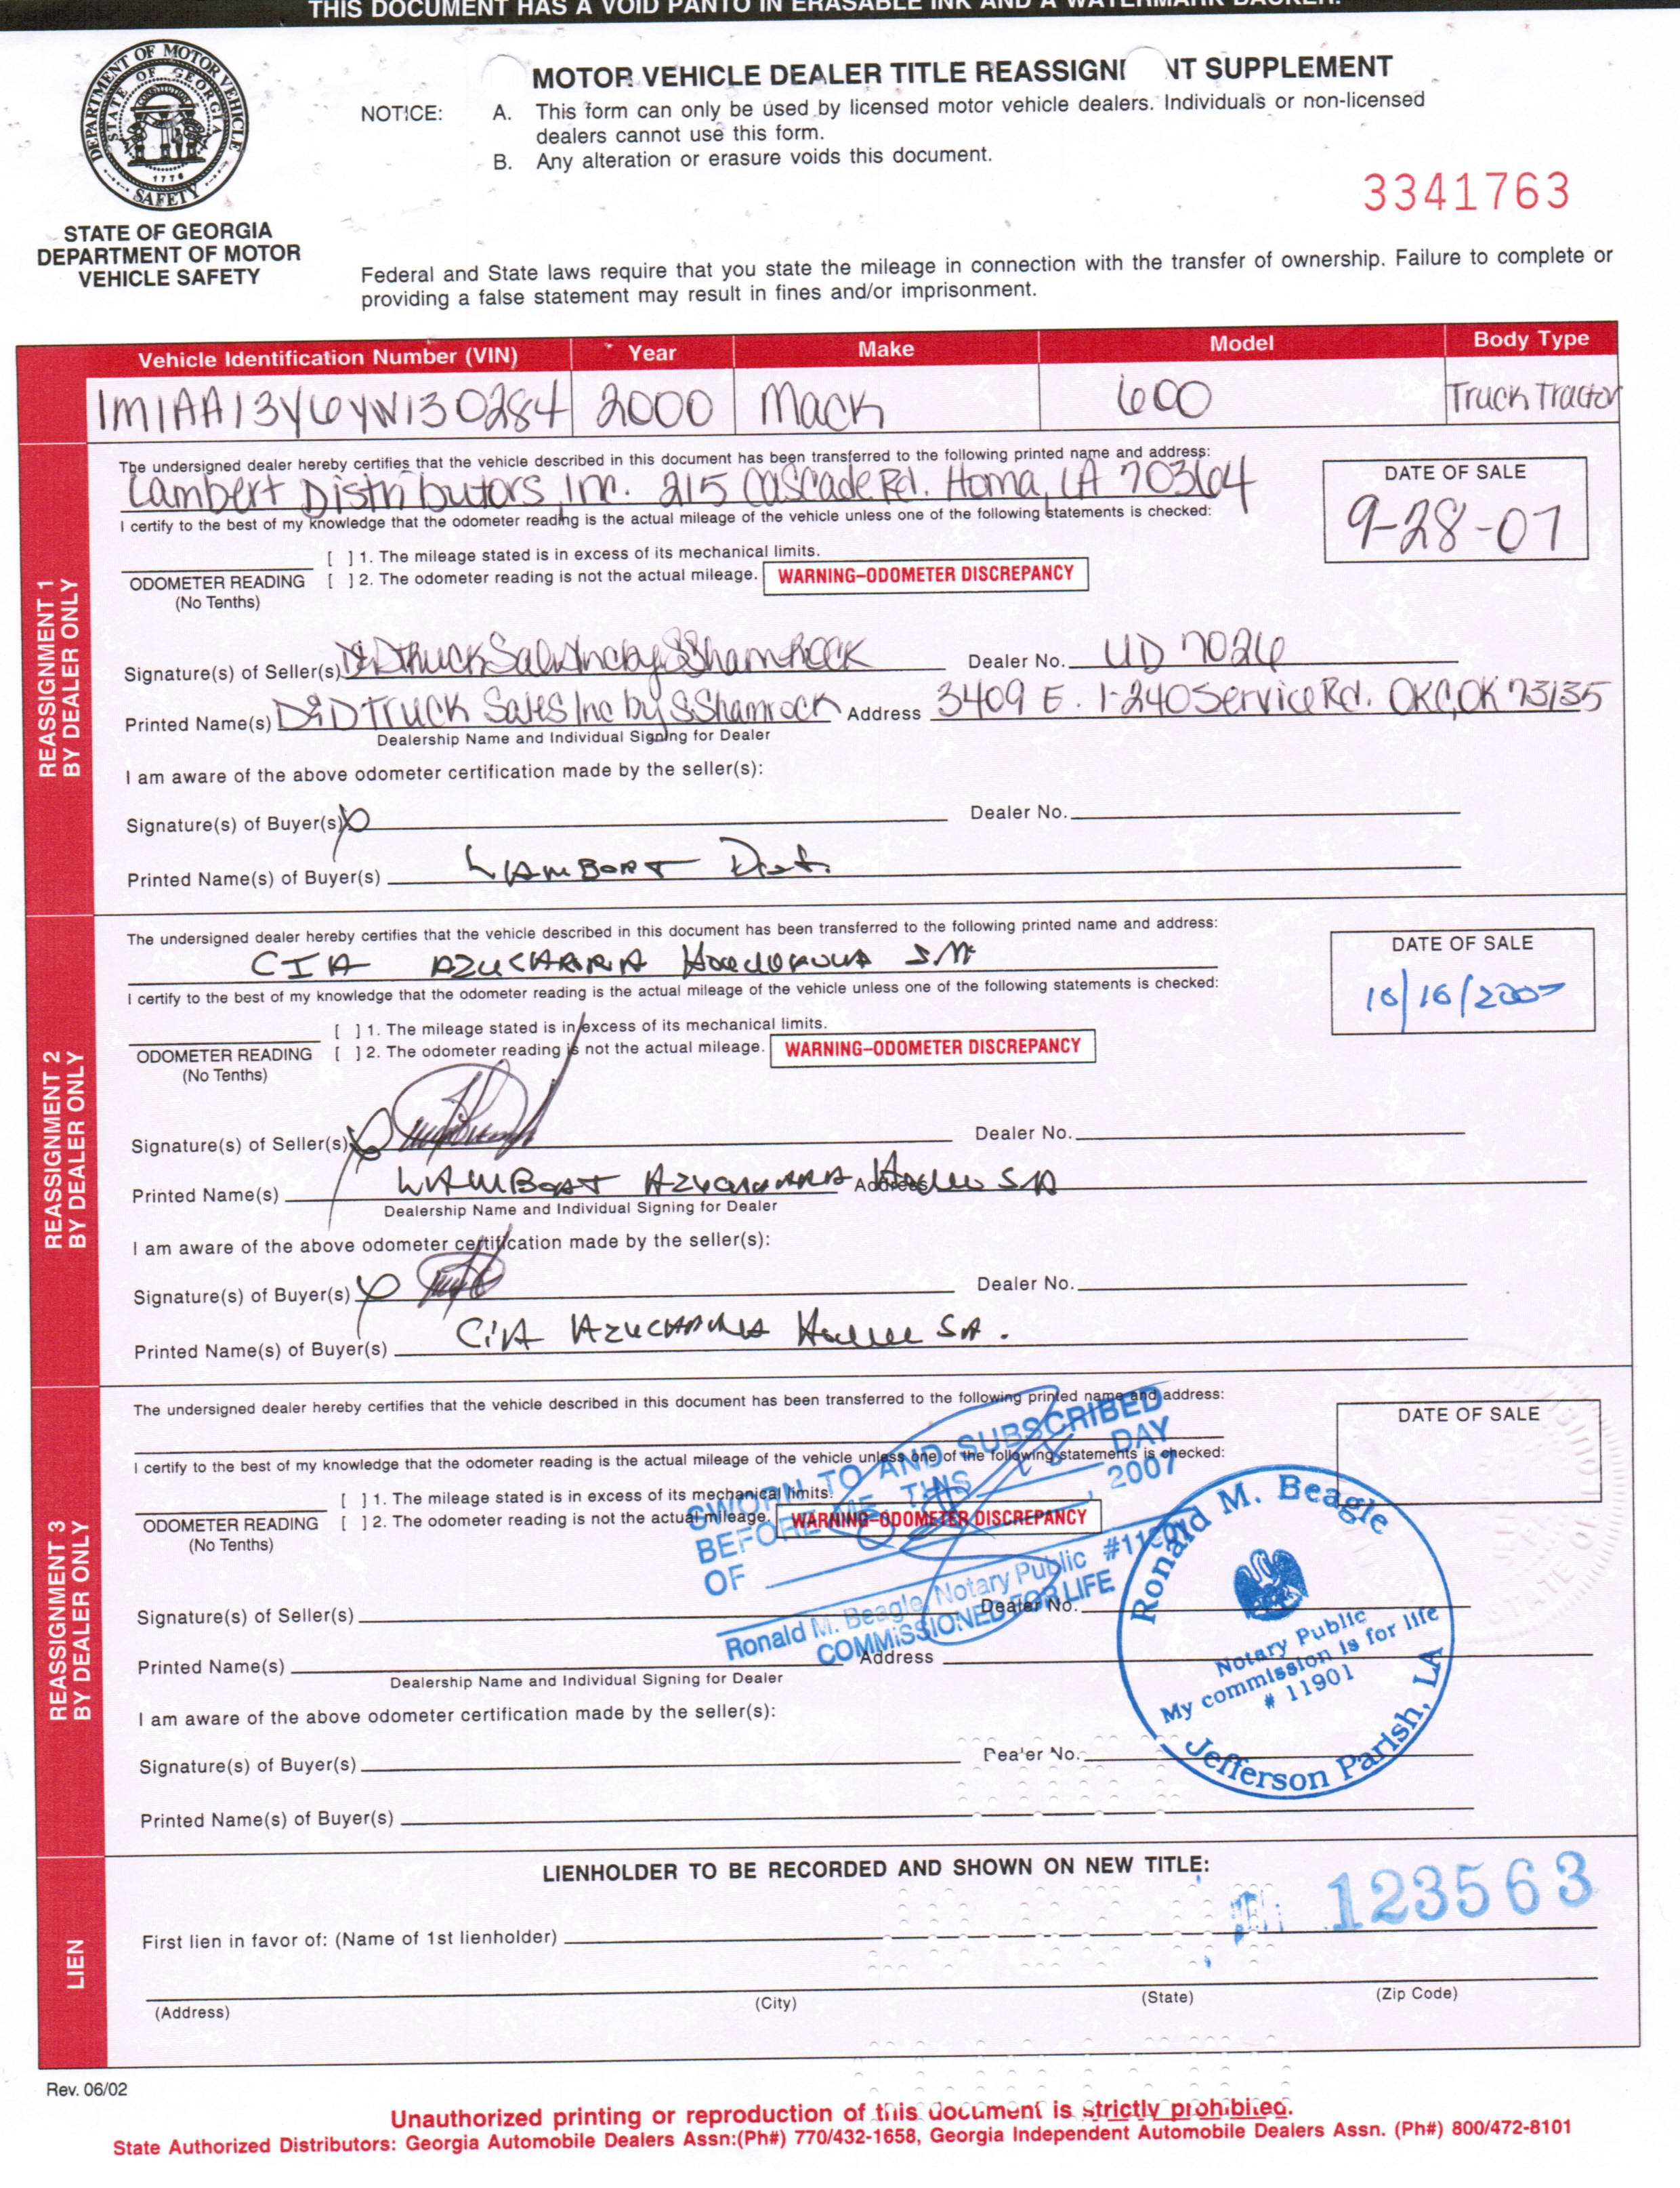 THIS DOCUMENT HAS A VOID PANTO IN ERASABLE INK AND A WATERMARK BACKER.
DEPARTMENT OF MOTOR VEHICLE SAFETY
STATE OF GEORGIA
CONSTITUTION
1776
STATE OF GEORGIA
DEPARTMENT OF MOTOR
VEHICLE SAFETY
MOTOR VEHICLE DEALER TITLE REASSIGN NT SUPPLEMENT
NOTICE: A. This form can only be used by licensed motor vehicle dealers. Individuals or non-licensed
dealers cannot use this form.
B. Any alteration or erasure voids this document.
3341763
Federal and State laws require that you state the mileage in connection with the transfer of ownership. Failure to complete or
providing a false statement may result in fines and/or imprisonment.
Vehicle Identification Number (VIN) Year Make Model Body Type
1M1AA13Y6YW130284 2000 Mack 600 Truck Tractor
REASSIGNMENT 1
BY DEALER ONLY
The undersigned dealer hereby certifies that the vehicle described in this document has been transferred to the following printed name and address:
Lambert Distributors, Inc. 215 Cascade Rd. Homa, LA 70364
DATE OF SALE
9-28-07
I certify to the best of my knowledge that the odometer reading is the actual mileage of the vehicle unless one of the following statements is checked:
[ ] 1. The mileage stated is in excess of its mechanical limits.
ODOMETER READING [ ] 2. The odometer reading is not the actual mileage. WARNING–ODOMETER DISCREPANCY
(No Tenths)
Signature(s) of Seller(s) D&D Truck Sales Inc by S Shamrock Dealer No. UD 7026
Printed Name(s) D&D Truck Sales Inc by S Shamrock Address 3409 E. I-240 Service Rd. OKC, OK 73135
Dealership Name and Individual Signing for Dealer
I am aware of the above odometer certification made by the seller(s):
Signature(s) of Buyer(s) Dealer No.
Printed Name(s) of Buyer(s) LAMBERT Dist.
REASSIGNMENT 2
BY DEALER ONLY
The undersigned dealer hereby certifies that the vehicle described in this document has been transferred to the following printed name and address:
CIA AZUCARERA S.A.
DATE OF SALE
10/16/2007
I certify to the best of my knowledge that the odometer reading is the actual mileage of the vehicle unless one of the following statements is checked:
[ ] 1. The mileage stated is in excess of its mechanical limits.
ODOMETER READING [ ] 2. The odometer reading is not the actual mileage. WARNING–ODOMETER DISCREPANCY
(No Tenths)
Signature(s) of Seller(s) Dealer No.
Printed Name(s) LAMBERT S.A Address
Dealership Name and Individual Signing for Dealer
I am aware of the above odometer certification made by the seller(s):
Signature(s) of Buyer(s) Dealer No.
Printed Name(s) of Buyer(s) CIA S.A.
REASSIGNMENT 3
BY DEALER ONLY
The undersigned dealer hereby certifies that the vehicle described in this document has been transferred to the following printed name and address:
DATE OF SALE
I certify to the best of my knowledge that the odometer reading is the actual mileage of the vehicle unless one of the following statements is checked:
[ ] 1. The mileage stated is in excess of its mechanical limits.
ODOMETER READING [ ] 2. The odometer reading is not the actual mileage. WARNING–ODOMETER DISCREPANCY
(No Tenths)
SWORN TO AND SUBSCRIBED
BEFORE ME, THIS DAY
OF , 2007
Ronald M. Beagle, Notary Public #11901
COMMISSIONED FOR LIFE
Ronald M. Beagle
Notary Public
My commission is for life
# 11901
Jefferson Parish, LA
Signature(s) of Seller(s) Dealer No.
Printed Name(s) Address
Dealership Name and Individual Signing for Dealer
I am aware of the above odometer certification made by the seller(s):
Signature(s) of Buyer(s) Dealer No.
Printed Name(s) of Buyer(s)
LIEN
LIENHOLDER TO BE RECORDED AND SHOWN ON NEW TITLE:
123563
First lien in favor of: (Name of 1st lienholder)
(Address) (City) (State) (Zip Code)
Rev. 06/02
Unauthorized printing or reproduction of this document is strictly prohibited.
State Authorized Distributors: Georgia Automobile Dealers Assn:(Ph#) 770/432-1658, Georgia Independent Automobile Dealers Assn. (Ph#) 800/472-8101